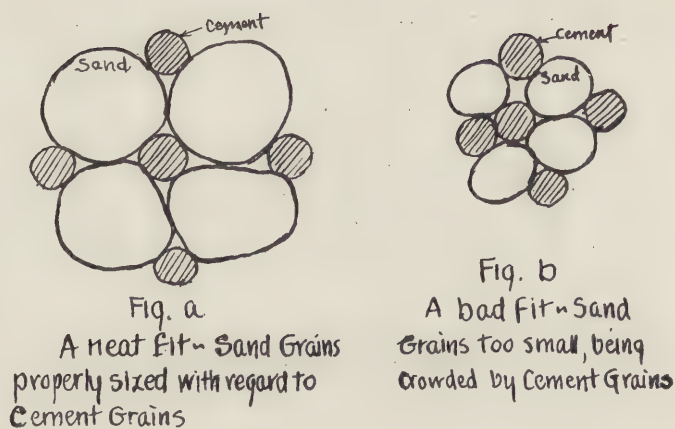 Cement
Sand
Fig. a
A neat fit~ Sand Grains
properly sized with regard to
Cement Grains
Cement
Sand
Fig. b
A bad Fit~Sand
Grains too small, being
Crowded by Cement Grains